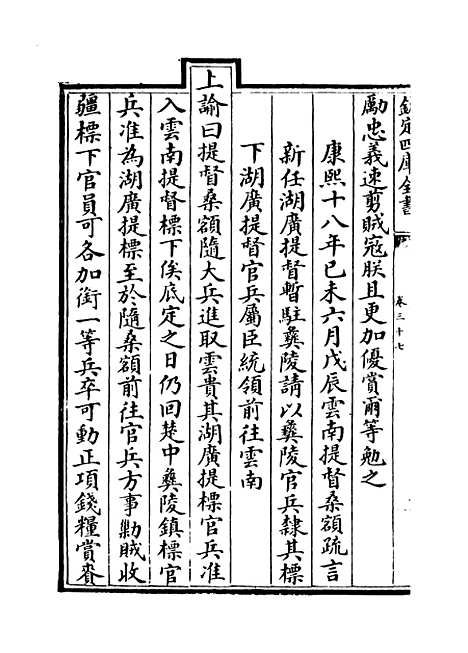 欽定四庫全書
卷三十七
勵忠義速剪賊寇朕且更加優賞爾等勉之
康熙十八年己未六月戊辰雲南提督桑額疏言
新任湖廣提督暫駐彝陵請以彝陵官兵隸其標
下湖廣提督官兵屬臣統領前往雲南
上諭曰提督桑額隨大兵進取雲貴其湖廣提標官兵准
入雲南提督標下俟底定之日仍回楚中彝陵鎮標官
兵准為湖廣提標至於隨桑額前往官兵方事勦賊收
疆標下官員可各加銜一等兵卒可動正項錢糧賞賚